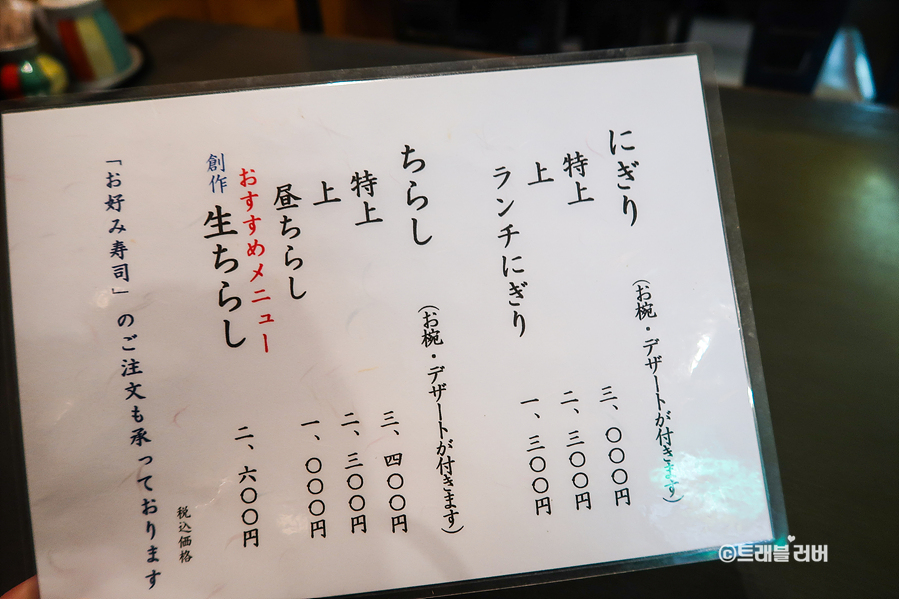 にぎり (お椀・デザートが付きます)
特上 三、〇〇〇円
上 二、三〇〇円
ランチにぎり 一、三〇〇円
ちらし (お椀・デザートが付きます)
特上 三、四〇〇円
上 二、三〇〇円
昼ちらし 一、〇〇〇円
おすすめメニュー
創作 生ちらし 二、六〇〇円
税込価格
「お好み寿司」のご注文も承っております
©트래블러버